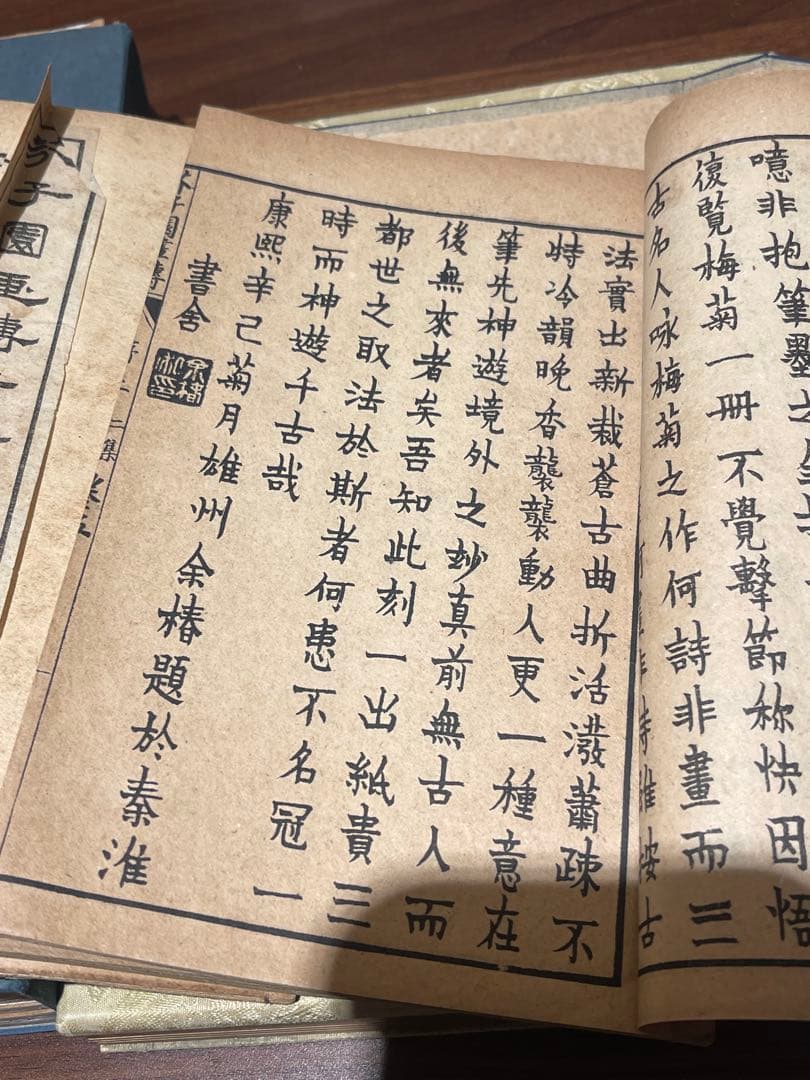 噫非抱筆墨之
復覽梅菊一冊不覺擊節称快因悟
古名人咏梅菊之作何詩非畫而三
詩雖按古
法實出新裁蒼古曲折活潑蕭疎不
特冷韻晚香襲襲動人更一種意在
筆先神遊境外之玅真前無古人而
後無來者矣吾知此刻一出紙貴三
都世之取法於斯者何患不名冠一
時而神遊千古哉
康熙辛己菊月雄州余椿題於秦淮
書舍
芥子園畫傳
二集
芥子園画傳